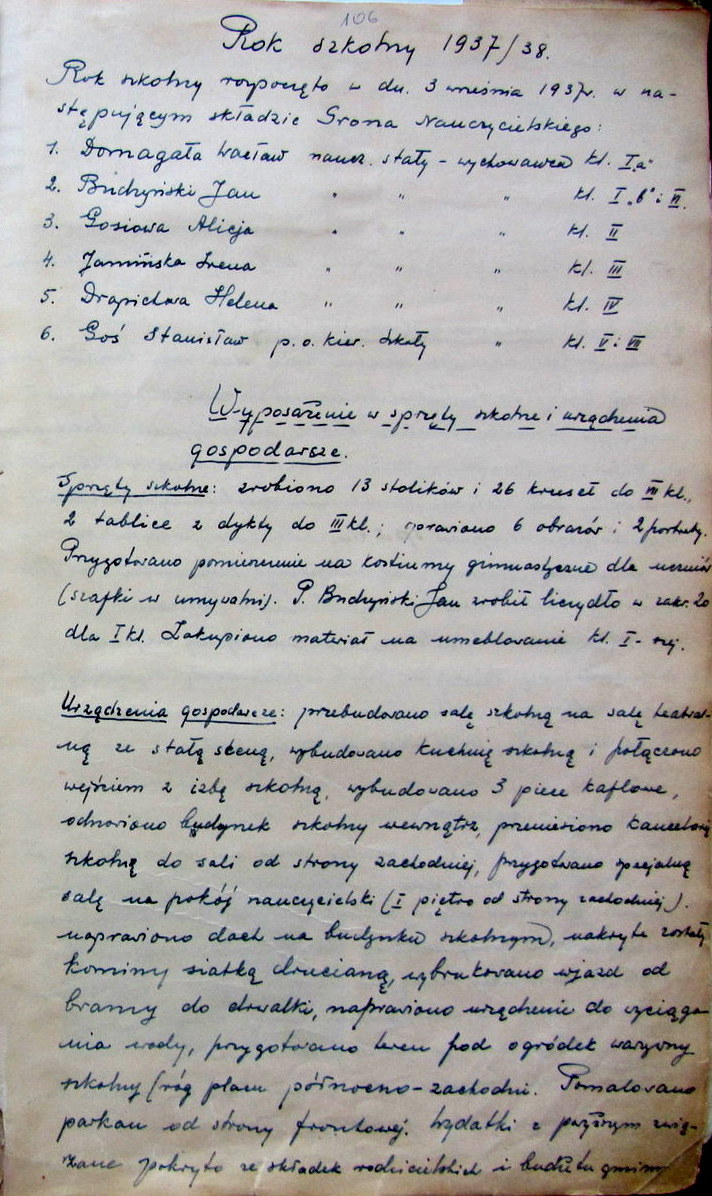 106
Rok szkolny 1937/38.
Rok szkolny rozpoczęto w dn. 3 września 1937r. w na-
stępującym składzie Grona Nauczycielskiego:
1. Domagała Wacław naucz. stały - wychowawca kl. I „a"
2. Budzyński Jan " " " kl. I „b" i VI.
3. Gosiowa Alicja " " " kl. II
4. Jamińska Irena " " " kl. III
5. Drapichowa Helena " " " kl. IV
6. Goś Stanisław p. o. kier. szkoły " kl. V i VII
Wyposażenie w sprzęty szkolne i urządzenia
gospodarsze.
Sprzęty szkolne: zrobiono 13 stolików i 26 krzeseł do VII kl.,
2 tablice z dykty do III kl.; oprawiono 6 obrazów i 2 portrety.
Przygotowano pomieszczenie na kostiumy gimnastyczne dla uczniów
(szafki w umywalni). P. Budzyński Jan zrobił liczydło w zakr. 20
dla I kl. Zakupiono materiał na umeblowanie kl. I-szej.
Urządzenia gospodarcze: przebudowano salę szkolną na salę teatral-
ną ze stałą sceną, wybudowano kuchnię szkolną i połączono
wejściem z izbą szkolną, wybudowano 3 piece kaflowe,
odnowiono budynek szkolny wewnątrz, przeniesiono kancelarię
szkolną do sali od strony zachodniej, przygotowano specjalną
salę na pokój nauczycielski (I piętro od strony zachodniej).
naprawiono dach na budynku szkolnym, nakryte zostały
kominy siatką drucianą, wybrukowano wjazd od
bramy do drwalki, naprawiono urządzenie do wyciąga-
nia wody, przygotowano teren pod ogródek warzywny
szkolny (róg placu północno-zachodni. Pomalowano
parkan od strony frontowej. Wydatki z powyższym zwią-
zane pokryto ze składek rodzicielskich i budżetu gminy